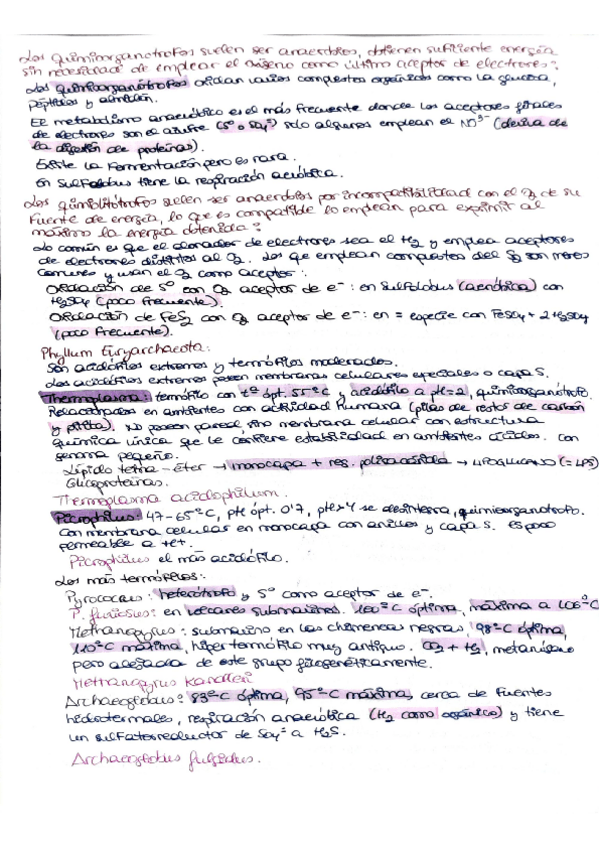 Los quimiorganotrofos suelen ser anaerobios, obtienen suficiente energía
sin necesidad de emplear el oxígeno como último aceptor de electrones:
Los quimiorganótrofos oxidan varios compuestos orgánicos como la glucosa,
péptidos y almidón.
El metabolismo anaeróbico es el más frecuente donde los aceptores finales
de electrones son el azufre (S° o SO4=) solo algunos emplean el NO3- (deriva de
la digestión de proteínas).
Existe la fermentación pero es rara.
En Sulfolobus tiene la respiración aeróbica.
Los quimiolitótrofos suelen ser anaerobios por incompatibilidad con el O2 de su
fuente de energía, lo que es compatible lo emplean para exprimir al
máximo la energía obtenida:
Lo común es que el donador de electrones sea el H2 y emplea aceptores
de electrones distintos al O2. Los que emplean compuestos del S son menos
comunes y usan el O2 como aceptor:
Oxidación de S° con O2 aceptor de e-: en Sulfolobus (aeróbica) con
H2SO4 (poco frecuente).
Oxidación de FeS2 con O2 aceptor de e-: en = especie con FeSO4 + 2H2SO4
(poco frecuente).
Phyllum Euryarchaeota:
Son acidófilos extremos y termófilos moderados.
Los acidófilos extremos poseen membranas celulares especiales o capa S.
Thermoplasma: termófilo con tª ópt. 55°C y acidófilo a pH=2, quimiorganótrofo.
Relacionados en ambientes con actividad humana (pilas de restos de carbón
y pirita). No poseen pared, sino membrana celular con estructura
química única que le confiere estabilidad en ambientes ácidos. Con
genoma pequeño.
Lípido tetra-éter → monocapa + res. polisacárida → LIPOGLICANO (=LPS)
Glicoproteínas.
Thermoplasma acidophilum.
Picrophilus: 47-65°C, pH ópt. 0'7, pH>4 se desintegra, quimiorganotrofo.
Con membrana celular en monocapa con anillos y capa S. Es poco
permeable a H+.
Picrophilus el más acidófilo.
Los más termófilos:
Pyrococcus: heterótrofo y S° como aceptor de e-.
P. furiosus: en volcanes submarinos. 100°C óptima, máxima a 106°C
Methanopyrus: submarino en las chimeneas negras, 98°C óptima,
110°C máxima, hipertermófilo muy antiguo. CO2 + H2, metanógeno
pero alejada de este grupo filogenéticamente.
Methanopyrus Kandleri
Archaeoglobus: 83°C óptima, 95°C máxima, cerca de fuentes
hidrotermales, respiración anaeróbica (H2 como orgánico) y tiene
un sulfatorreductor de SO4= a H2S.
Archaeoglobus fulgidus.